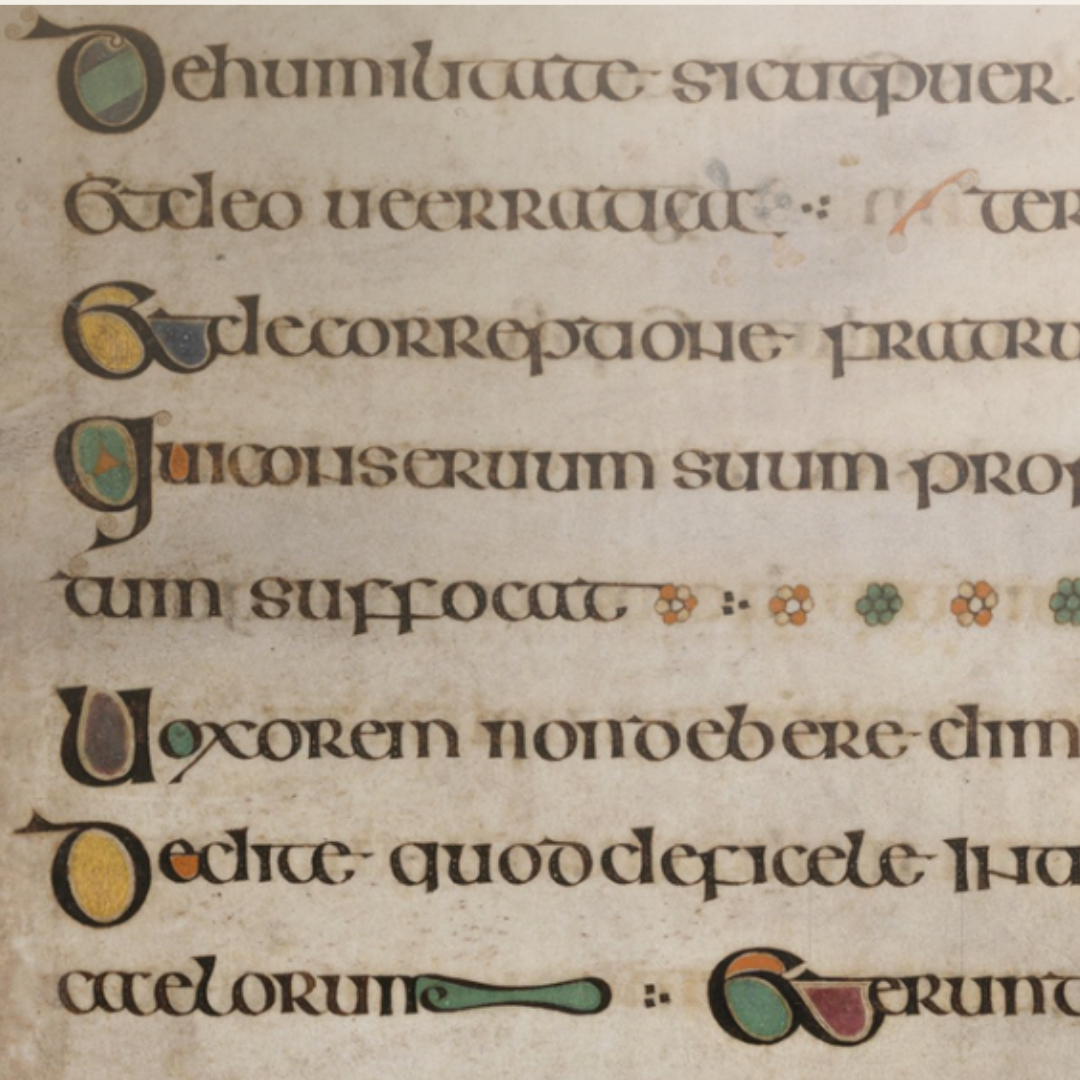 De humilitate sicut puer
Et de eo ue erraticae ter
Et de correptione fratru
Qui conseruum suum prop
tum suffocat
Uoxorem non debere dim
De dite quod deficele int
caelorum Et erunt